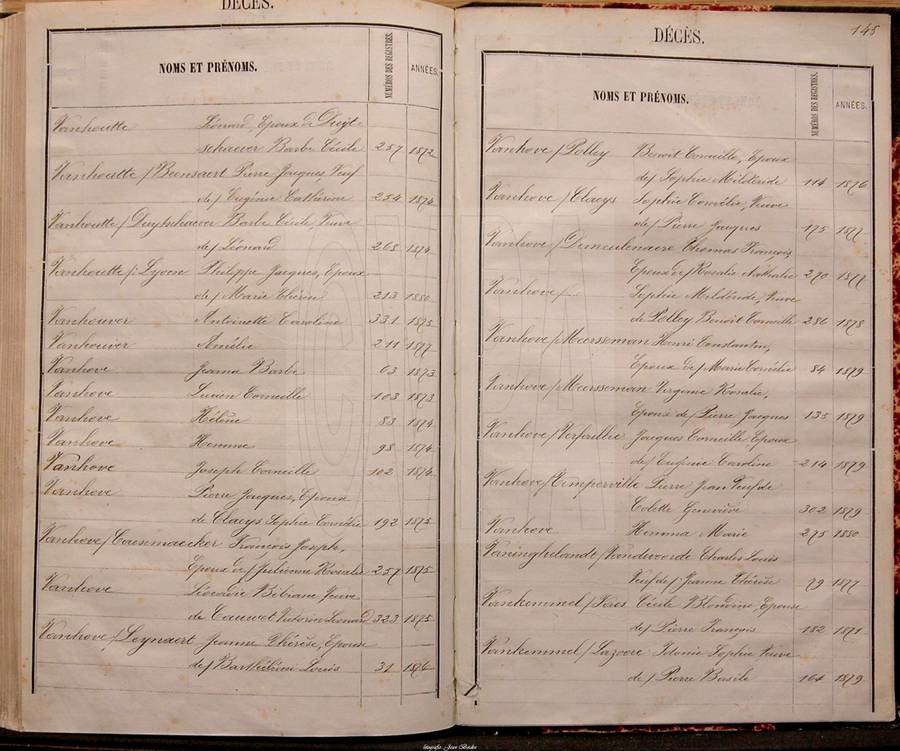 DÉCÈS.
NOMS ET PRÉNOMS. NUMÉROS DES REGISTRES. ANNÉES.
Vanhoutte Léonard, Epoux de Duyt-
schaever Barbe Cécile 257 1872
Vanhoutte / Beernaert Pierre Jacques Veuf
de / Eugénie Cathérine 254 1874
Vanhoutte / Duytschaever Barbe Cécile, Veuve
de / Léonard 268 1874
Vanhoutte / Lyoen Philippe Jacques, Epoux
de / Marie Thérèse 213 1880
Vanhouver Antoinette Caroline 331 1875
Vanhouver Amélie 211 1877
Vanhove Jeanne Barbe 63 1873
Vanhove Lucien Corneille 103 1873
Vanhove Hélène 83 1874
Vanhove Hemma 98 1874
Vanhove Joseph Corneille 102 1874
Vanhove Pierre Jacques, Epoux
de Claeys Sophie Cornélie 192 1875
Vanhove / Caesemaecker François Joseph,
Epoux de / Julienne Rosalie 257 1875
Vanhove Léocadie Bibiane Veuve
de Cauwet Victorin Léonard 323 1875
Vanhove / Leynaert Jeanne Thérèse, Epouse
de / Barthélémi Louis 31 1876
145
DÉCÈS.
NOMS ET PRÉNOMS. NUMÉROS DES REGISTRES. ANNÉES.
Vanhove / Polley Benoit Corneille, Epoux
de / Sophie Mildéride 114 1876
Vanhove / Claeys Sophie Cornélie, Veuve
de / Pierre Jacques 175 1877
Vanhove / Demeulenaere Thomas François
Epoux de / Rosalie Nathalie 270 1877
Vanhove / Sophie Mildéride, Veuve
de Polley Benoit Corneille 286 1878
Vanhove / Meersseman Henri Constantin,
Epoux de / Marie Cornélie 84 1879
Vanhove / Meersseman Virginie Rosalie,
Epouse de / Pierre Jacques 135 1879
Vanhove / Verfaillie Jacques Corneille, Epoux
de / Eugénie Caroline 214 1879
Vanhove / Timperville Pierre Jean Veuf de
Colette Geneviève 302 1879
Vanhove Hemma Marie 275 1880
Vaninghelandt / Vandevoorde Charles Louis
Veuf de / Jeanne Thérèse 79 1877
Vankemmel / Faes Cécile Blondine, Epouse
de / Pierre François 182 1871
Vankemmel / Lazoore Sophie Veuve
de / Pierre Basile 164 1879